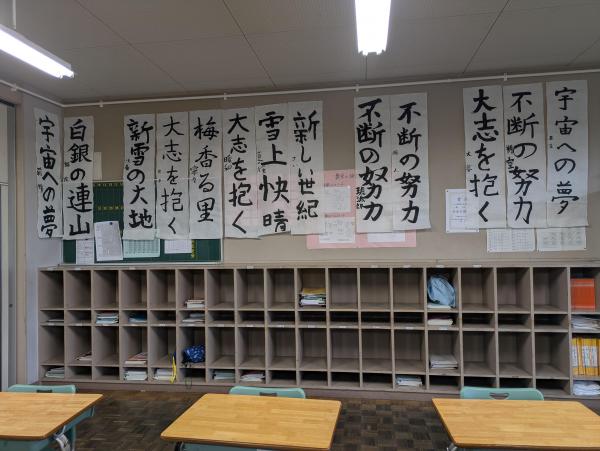 宇宙への夢
白銀の連山
新雪の大地
大志を抱く
梅香る里
大志を抱く
雪上快晴
新しい世紀
不断の努力
不断の努力
大志を抱く
不断の努力
宇宙への夢